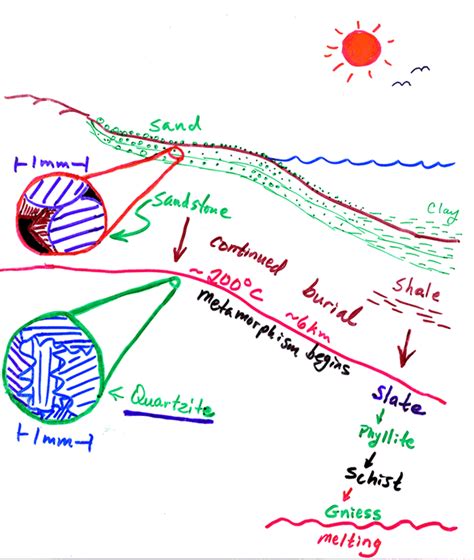 sand
1mm
Clay
Sandstone
continued burial
Shale
~200°C ~6km
metamorphism begins
Slate
Quartzite
Phyllite
1mm
Schist
Gniess
melting